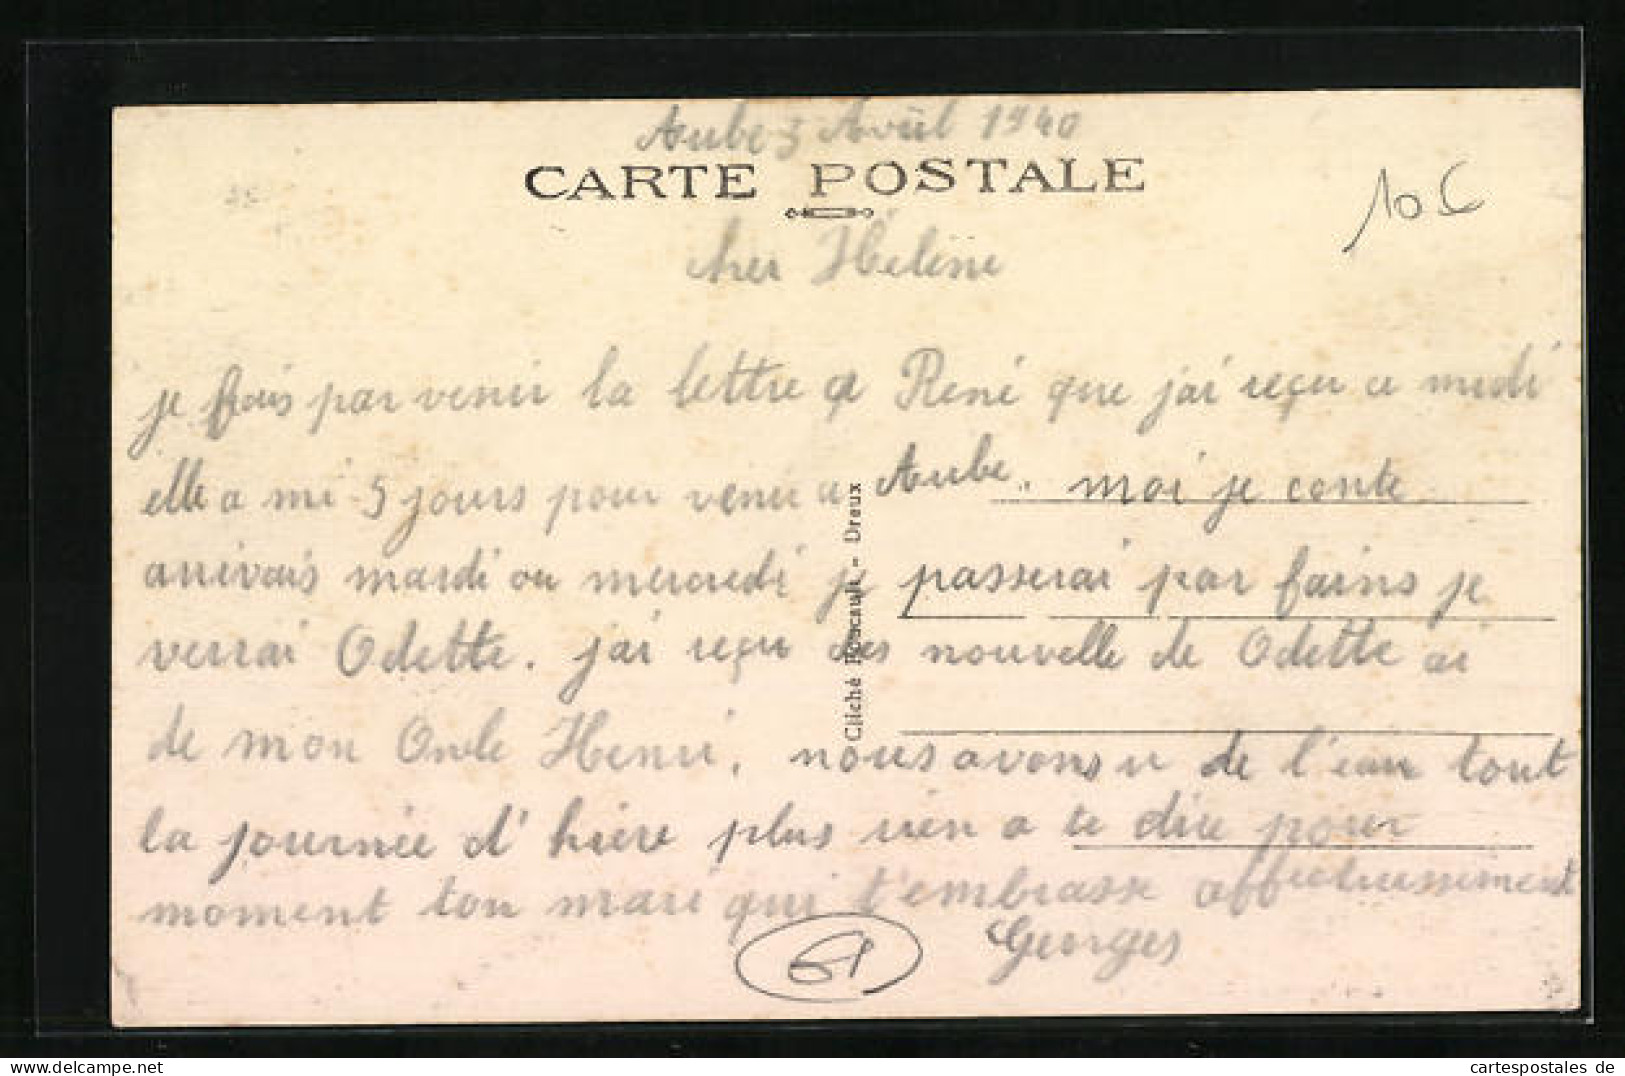 Aube 3 Avril 1940
CARTE POSTALE
10 €
cher Hélène
je fais par venir la lettre a René que jai reçu ce midi
elle a mi 5 jours pour venir a Aube. moi je conte
arrivais mardi ou mercredi je passerai par fains je
verrai Odette. jai reçu des nouvelle de Odette ai
de mon Oncle Henri. nous avons u de l'eau tout
la journée d'hière plus rien a te dire pour
moment ton mari qui t'embrasse affectueusement
Georges
61
Cliché Foucault - Dreux
cartespostales de